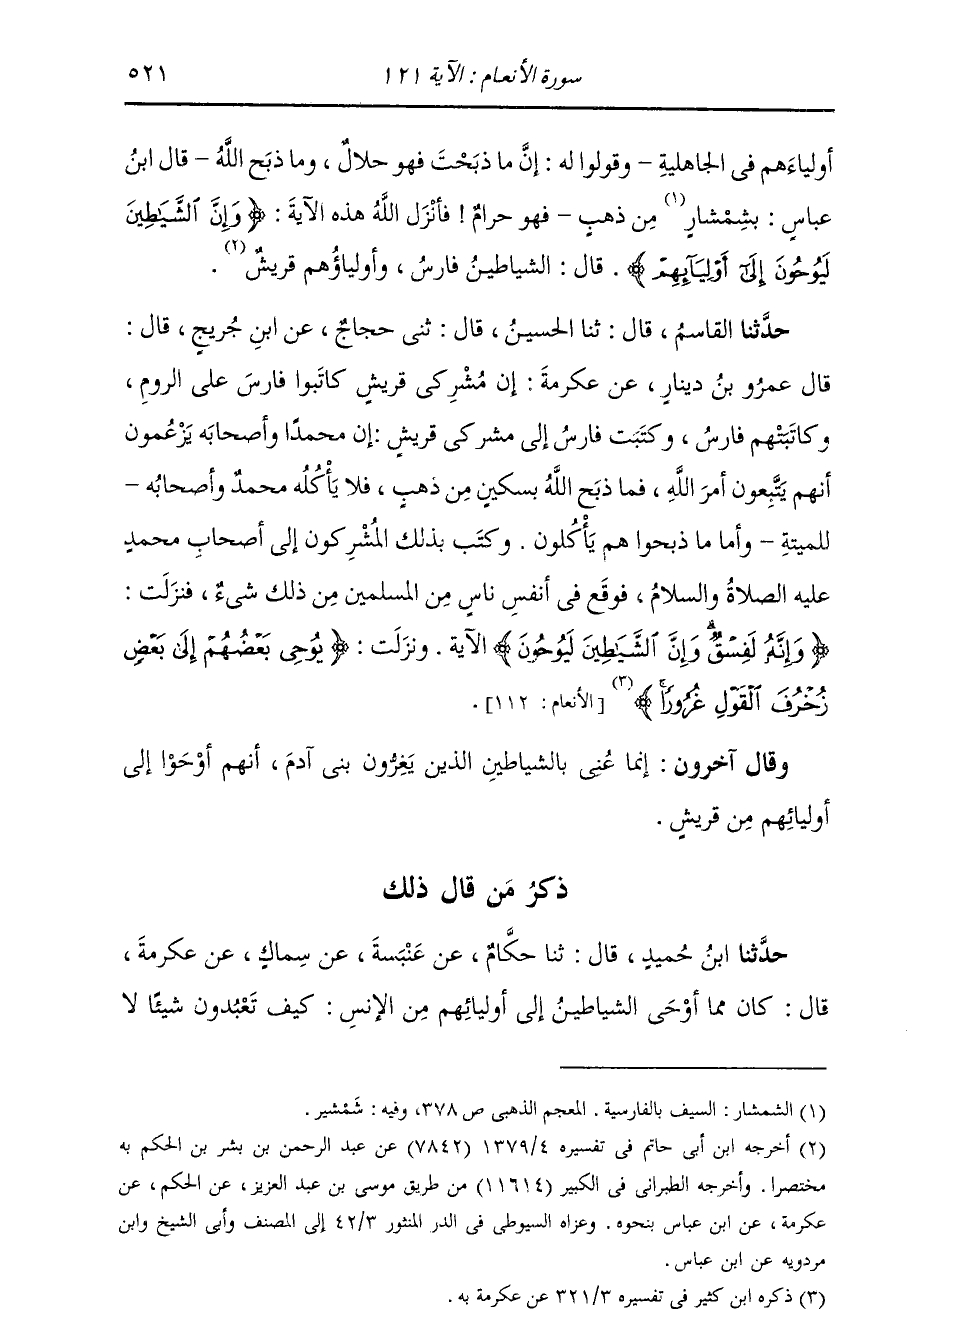 سورة الأنعام : الآية ١٢١
٥٢١
أولياءَهم فى الجاهليةِ – وقولوا له : إنَّ ما ذبَحْتَ فهو حلالٌ ، وما ذبَح اللَّهُ – قال ابنُ
عباسٍ : بشِمْشارٍ(١) مِن ذهبٍ – فهو حرامٌ ! فأنْزَل اللَّهُ هذه الآيةَ : ﴿ وَإِنَّ ٱلشَّيَٰطِينَ
لَيُوحُونَ إِلَىٰٓ أَوْلِيَآئِهِمْ ﴾ . قال : الشياطينُ فارسُ ، وأولياؤُهم قريشٌ(٢) .
حدَّثنا القاسمُ ، قال : ثنا الحسينُ ، قال : ثنى حجاجٌ ، عن ابنِ جُريجٍ ، قال :
قال عمرُو بنُ دينارٍ ، عن عكرمةَ : إن مُشْرِكى قريشٍ كاتَبوا فارسَ على الرومِ ،
وكاتَبَتْهم فارسُ ، وكتَبَت فارسُ إلى مشركى قريشٍ :إن محمدًا وأصحابَه يَزْعُمون
أنهم يَتَّبِعون أمرَ اللَّهِ ، فما ذبَح اللَّهُ بسكينٍ مِن ذهبٍ ، فلا يَأْكُلُه محمدٌ وأصحابُه –
للميتةِ – وأما ما ذبحوا هم يَأْكُلون . وكتَب بذلك المُشْرِكون إلى أصحابِ محمدٍ
عليه الصلاةُ والسلامُ ، فوقَع فى أنفسِ ناسٍ مِن المسلمين مِن ذلك شىءٌ ، فنزَلَت :
﴿ وَإِنَّهُۥ لَفِسْقٌۗ وَإِنَّ ٱلشَّيَٰطِينَ لَيُوحُونَ ﴾ الآية . ونزَلَت : ﴿ يُوحِى بَعْضُهُمْ إِلَىٰ بَعْضٍ
زُخْرُفَ ٱلْقَوْلِ غُرُورًاۚ ﴾(٣) [الأنعام : ١١٢] .
وقال آخرون : إنما عُنِى بالشياطينِ الذين يَغُرُّون بنى آدمَ ، أنهم أوْحَوْا إلى
أوليائِهم مِن قريشٍ .
ذكرُ مَن قال ذلك
حدَّثنا ابنُ حُميدٍ ، قال : ثنا حكَّامٌ ، عن عَنْبَسةَ ، عن سِماكٍ ، عن عكرمةَ ،
قال : كان مما أوْحَى الشياطينُ إلى أوليائِهم مِن الإنسِ : كيف تَعْبُدون شيئًا لا
(١) الشمشار : السيف بالفارسية . المعجم الذهبى ص ٣٧٨، وفيه : شَمْشير .
(٢) أخرجه ابن أبى حاتم فى تفسيره ١٣٧٩/٤ (٧٨٤٢) عن عبد الرحمن بن بشر بن الحكم به
مختصرا . وأخرجه الطبرانى فى الكبير (١١٦١٤) من طريق موسى بن عبد العزيز ، عن الحكم ، عن
عكرمة ، عن ابن عباس بنحوه . وعزاه السيوطى فى الدر المنثور ٤٢/٣ إلى المصنف وأبى الشيخ وابن
مردويه عن ابن عباس .
(٣) ذكره ابن كثير فى تفسيره ٣٢١/٣ عن عكرمة به .